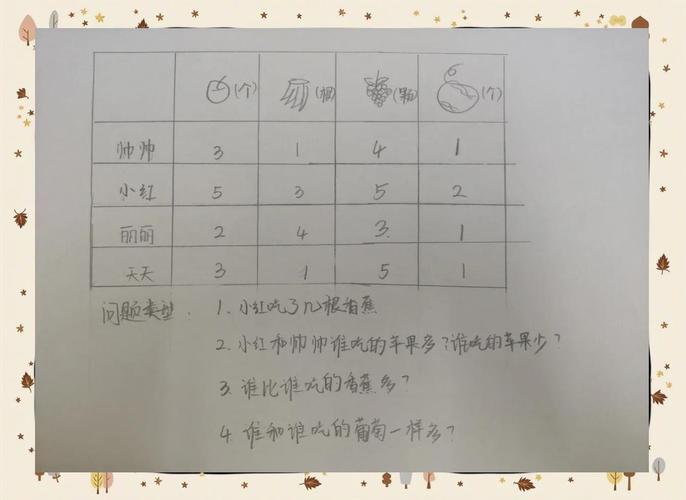 (个) (根) (颗) (个)
帅帅 3 1 4 1
小红 5 3 5 2
丽丽 2 4 3 1
天天 3 1 5 1
问题类型: 1.小红吃了几根香蕉
2.小红和帅帅谁吃的苹果多?谁吃的苹果少?
3.谁比谁吃的香蕉多?
4.谁和谁吃的葡萄一样多?